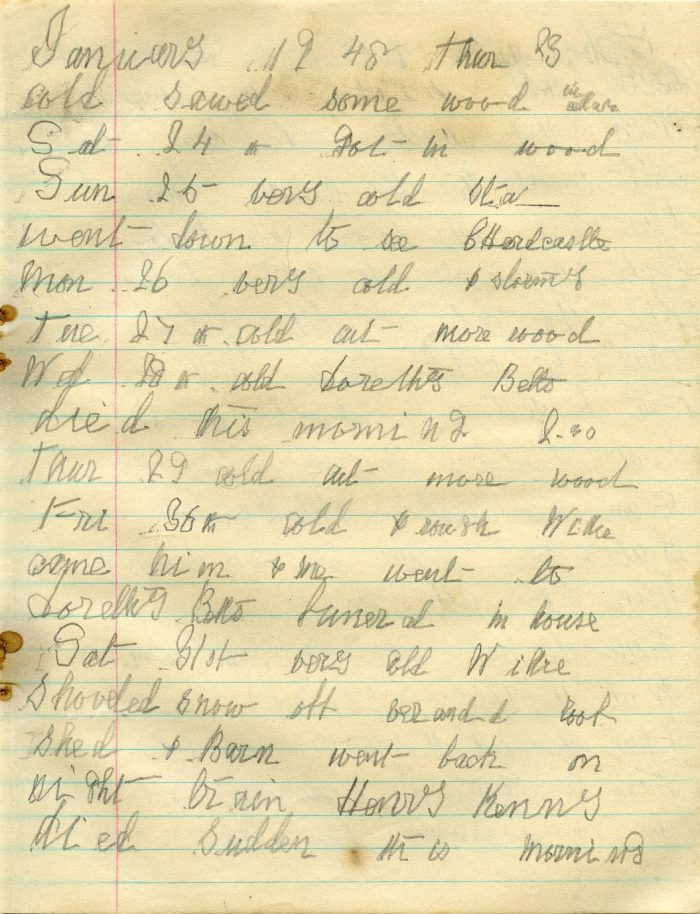 January 1948 thur 23
cold sawed some wood in
Sat 24 th Got in wood
Sun 25 very cold
went down to see C Hardcastle
Mon 26 very cold & stormy
Tue 27 th cold cut more wood
Wed 28 th cold Dorethy Betts
died this morning 2.20
Thur 29 cold cut more wood
Fri 30 th cold & rough Wilke
came him & me went to
Dorethy Betts funeral in house
Sat 31st very cold Wilke
shoveled snow off verandd roof
shed & Barn went back on
night train Henry Kenny
died sudden this morning